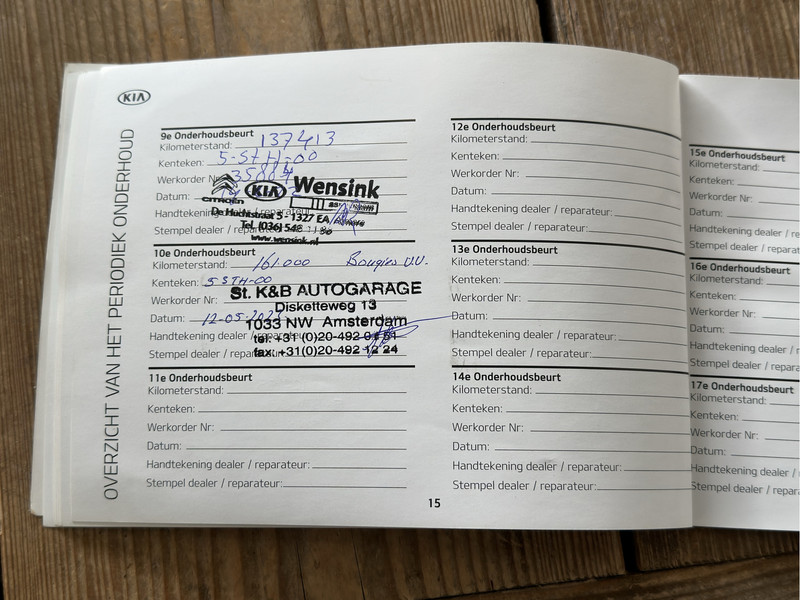 KIA
OVERZICHT VAN HET PERIODIEK ONDERHOUD
9e Onderhoudsbeurt
Kilometerstand: 137413
Kenteken: 5-STH-00
Werkorder Nr: 35004
Datum:
Handtekening dealer / reparateur:
Stempel dealer / reparateur:
CITROËN KIA Wensink
De Huchtstraat 5 - 1327 EA
Tel. (036) 548
www.wensink.nl
10e Onderhoudsbeurt
Kilometerstand: 161.000 Bougies V.V.
Kenteken: 5STH-00
Werkorder Nr:
Datum: 12-05-202
Handtekening dealer / reparateur:
Stempel dealer / reparateur:
St. K&B AUTOGARAGE
Disketteweg 13
1033 NW Amsterdam
tel: +31 (0)20-492
fax: +31(0)20-492 12 24
11e Onderhoudsbeurt
Kilometerstand:
Kenteken:
Werkorder Nr:
Datum:
Handtekening dealer / reparateur:
Stempel dealer / reparateur:
12e Onderhoudsbeurt
Kilometerstand:
Kenteken:
Werkorder Nr:
Datum:
Handtekening dealer / reparateur:
Stempel dealer / reparateur:
13e Onderhoudsbeurt
Kilometerstand:
Kenteken:
Werkorder Nr:
Datum:
Handtekening dealer / reparateur:
Stempel dealer / reparateur:
14e Onderhoudsbeurt
Kilometerstand:
Kenteken:
Werkorder Nr:
Datum:
Handtekening dealer / reparateur:
Stempel dealer / reparateur:
15
15e Onderhoudsbeurt
Kilometerstand:
Kenteken:
Werkorder Nr:
Datum:
Handtekening dealer / re
Stempel dealer / repara
16e Onderhoudsbeurt
Kilometerstand:
Kenteken:
Werkorder Nr:
Datum:
Handtekening dealer / r
Stempel dealer / repara
17e Onderhoudsbeurt
Kilometerstand:
Kenteken:
Werkorder Nr:
Datum:
Handtekening dealer / r
Stempel dealer / repar